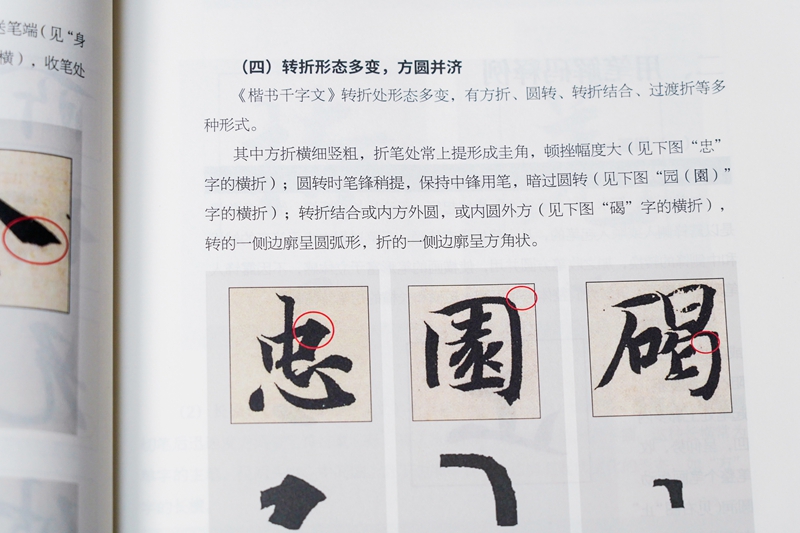 送笔端（见“身
横），收笔处
（四）转折形态多变，方圆并济
《楷书千字文》转折处形态多变，有方折、圆转、转折结合、过渡折等多
种形式。
其中方折横细竖粗，折笔处常上提形成圭角，顿挫幅度大（见下图“忠”
字的横折）；圆转时笔锋稍提，保持中锋用笔，暗过圆转（见下图“园（園）”
字的横折）；转折结合或内方外圆，或内圆外方（见下图“碣”字的横折），
转的一侧边廓呈圆弧形，折的一侧边廓呈方角状。
忠 園 碣